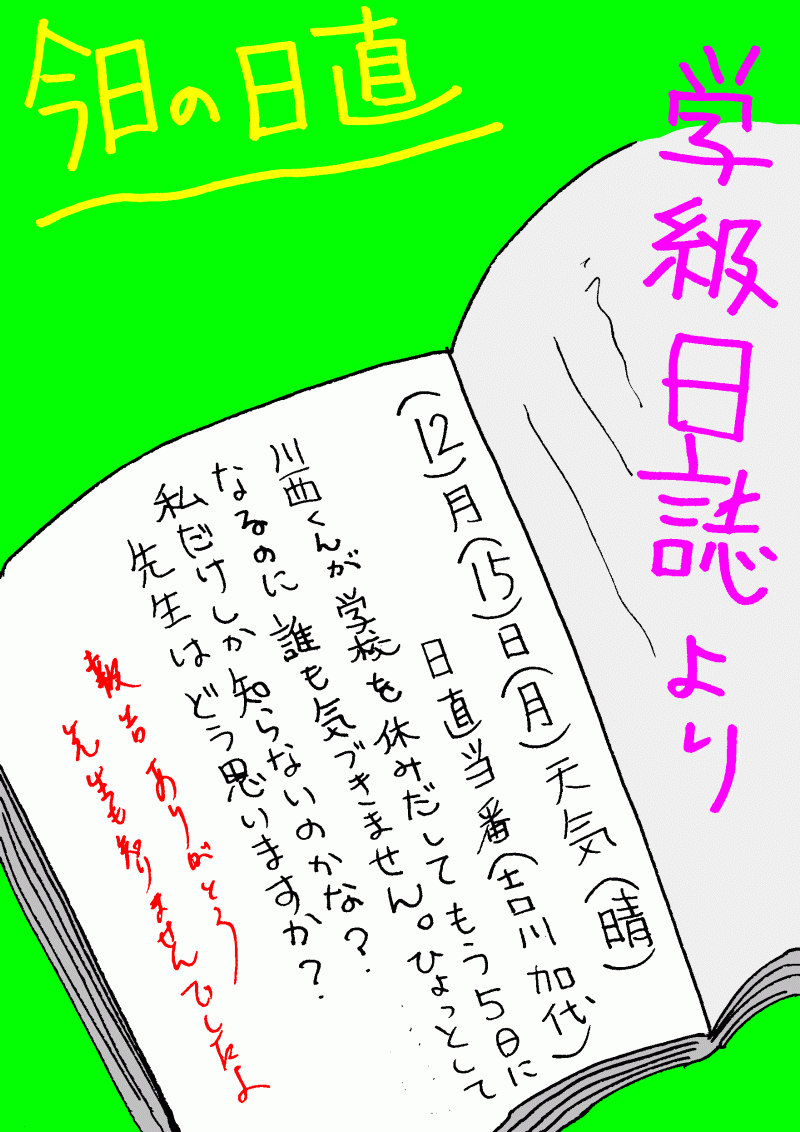 今日の日直
学級日誌より
(12)月(15)日(月)天気(晴)
日直当番(吉川加代)
川西くんが学校を休みだしてもう5日に
なるのに誰も気づきません。ひょっとして
私だけしか知らないのかな?
先生はどう思いますか?
報告ありがとう
先生も知りませんでしたよ